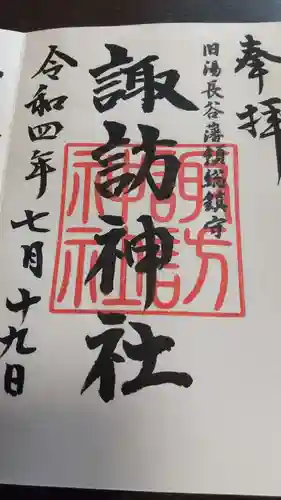 奉拝
旧湯長谷藩領総鎮守
諏訪神社
諏訪神社
令和四年七月十九日